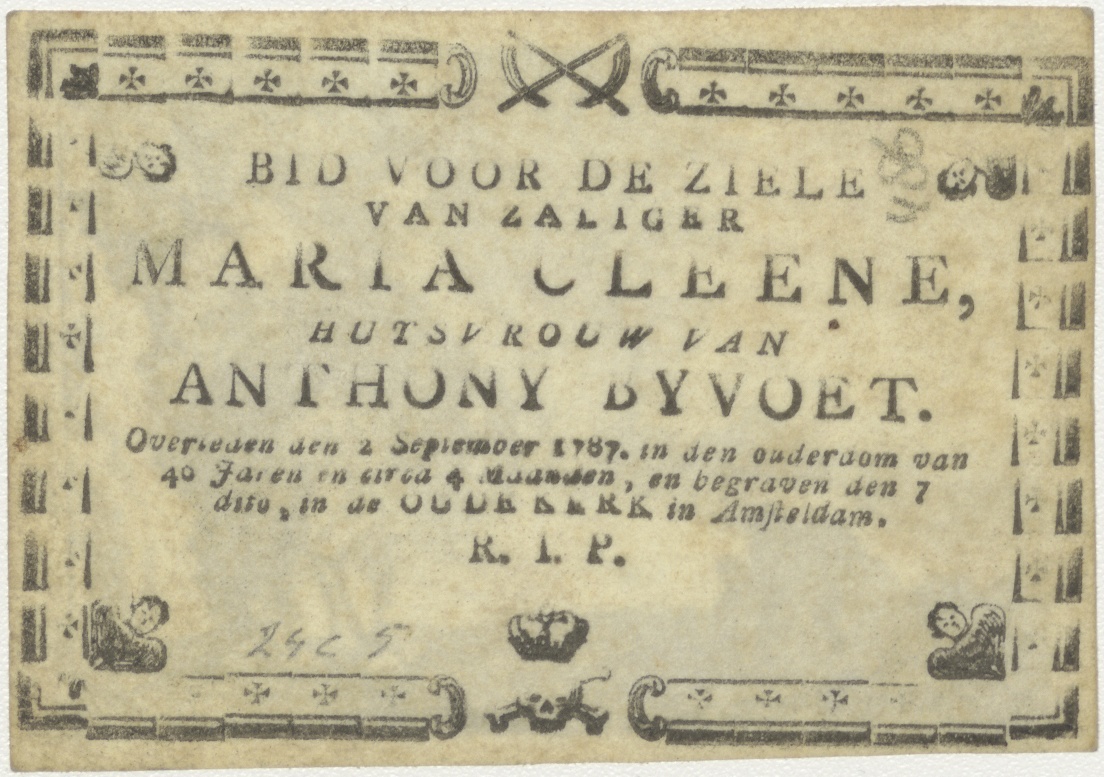 BID VOOR DE ZIELE
VAN ZALIGER
MARIA CLEENE,
HUISVROUW VAN
ANTHONY BYVOET.
Overleden den 2 September 1787. in den ouderdom van
40 Jaren en circa 4 Maanden, en begraven den 7
dito, in de OUDE KERK in Amsteldam.
R. I. P.